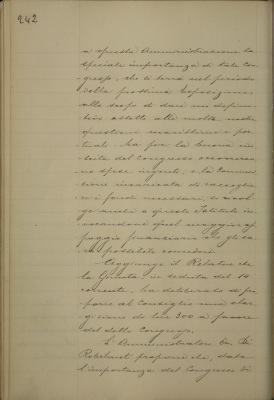 242
a questa Amministrazione la
speciale importanza di tale Con-
gresso, che si terrà nel periodo
della prossima Esposizione,
allo scopo di dare un defini-
tivo assetto alle molte
questioni marittime e por-
tuali. Ma per la buona riu-
scita del Congresso occorrera-
no spese ingenti, e la Commis-
sione incaricata di raccoglie-
re i fondi necessari, si rivol-
ge anche a questo Istituto in-
vocando quel maggior ap-
poggio finanziario che gli sa-
rà possibile concedere.
Aggiunge il Relatore che
la Giunta, in seduta del 10
corrente, ha deliberato di pro-
porre al Consiglio una elar-
gizione di lire 300 a favore
del detto Congresso.
L'Amministratore
Robilanti propone che, data
l'importanza del Congresso di